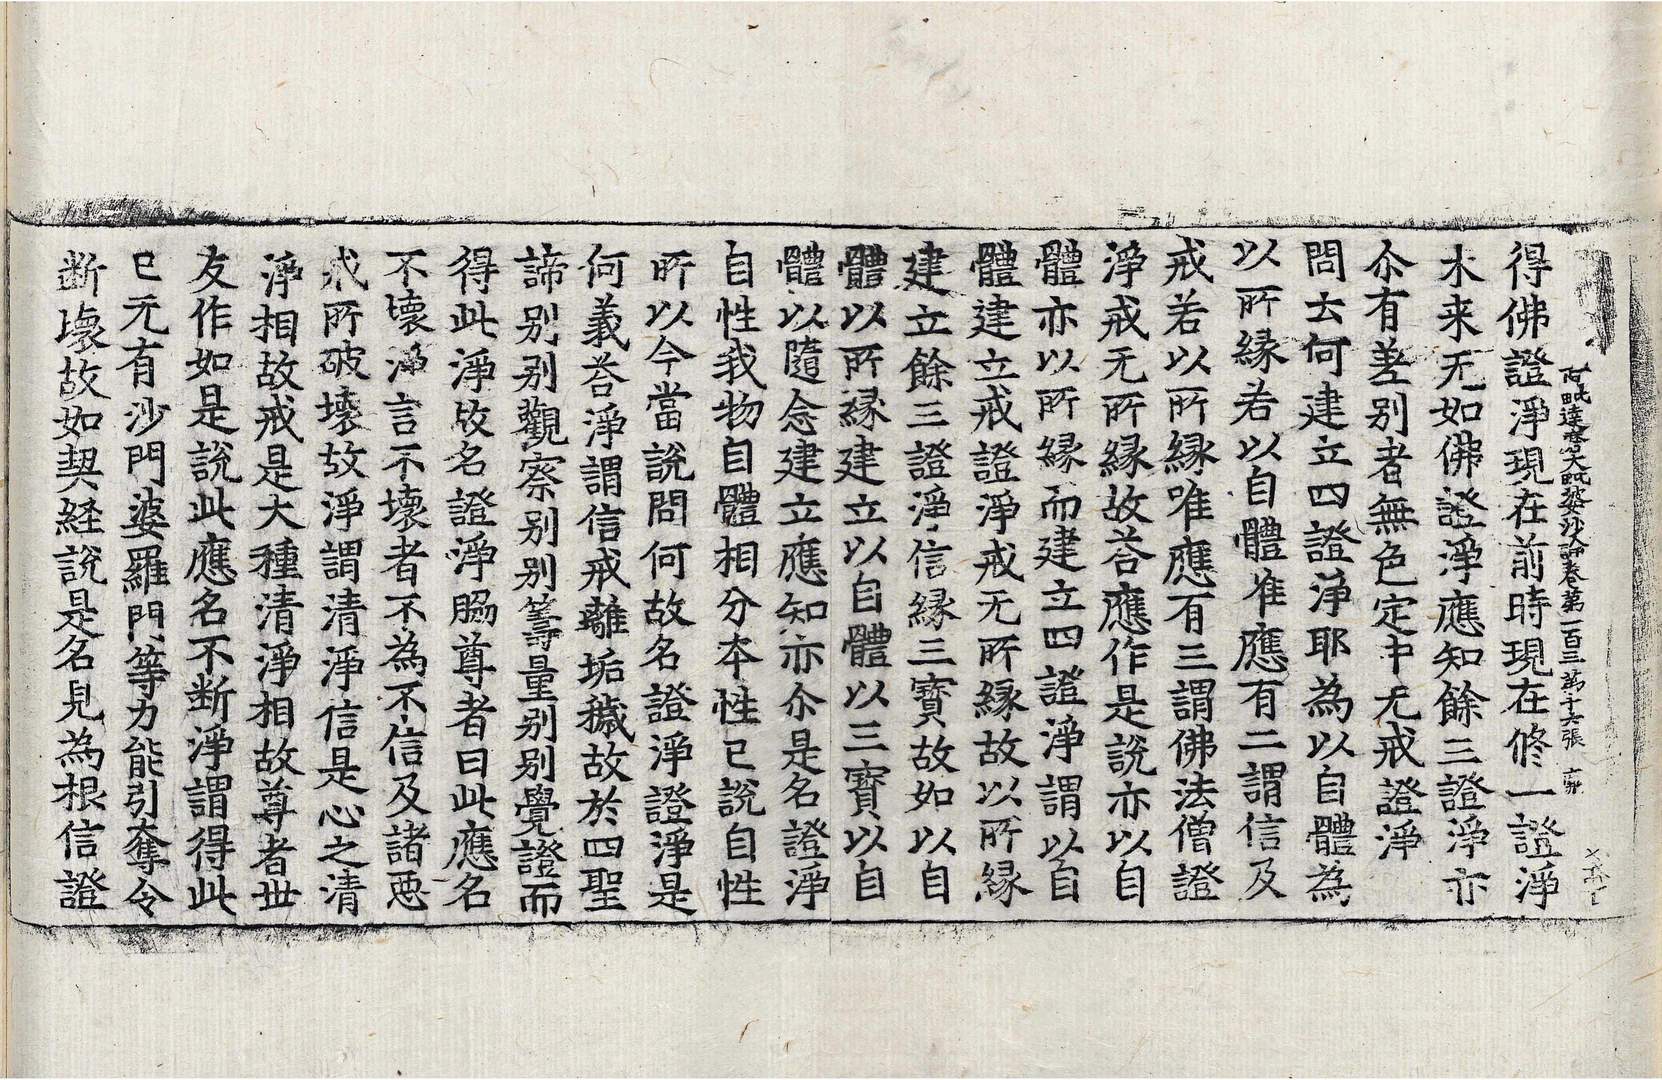 阿毗達磨大毗婆沙論卷第一百三 第十六張
得佛證淨現在前時現在修一證淨
未来无如佛證淨應知餘三證淨亦
尒有差别者無色定中无戒證淨
問云何建立四證淨耶為以自體為
以所縁若以自體准應有二謂信及
戒若以所縁唯應有三謂佛法僧證
淨戒无所縁故荅應作是說亦以自
體亦以所縁而建立四證淨謂以自
體建立戒證淨戒无所縁故以所縁
建立餘三證淨信縁三寶故如以自
體以所縁建立以自體以三寶以自
體以隨念建立應知亦尒是名證淨
自性我物自體相分本性已說自性
所以今當說問何故名證淨證淨是
何義荅淨謂信戒離垢穢故於四聖
諦别别觀察别别籌量别别覺證而
得此淨故名證淨脇尊者曰此應名
不壞淨言不壞者不為不信及諸惡
戒所破壞故淨謂清淨信是心之清
淨相故戒是大種清淨相故尊者世
友作如是說此應名不断淨謂得此
已无有沙門婆羅門等力能引奪令
断壞故如契経說是名見為根信證